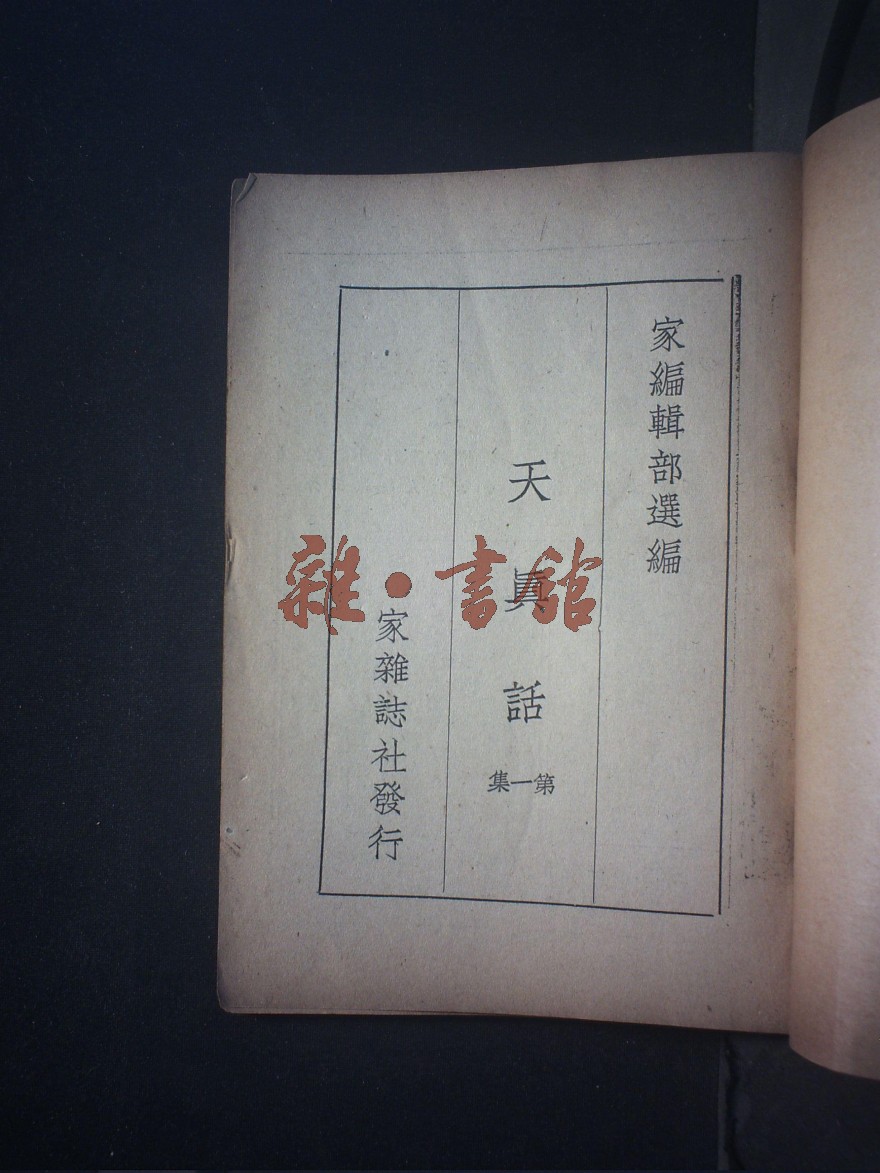 家編輯部選編
天眞話
第一集
家雜誌社發行
雜·書館